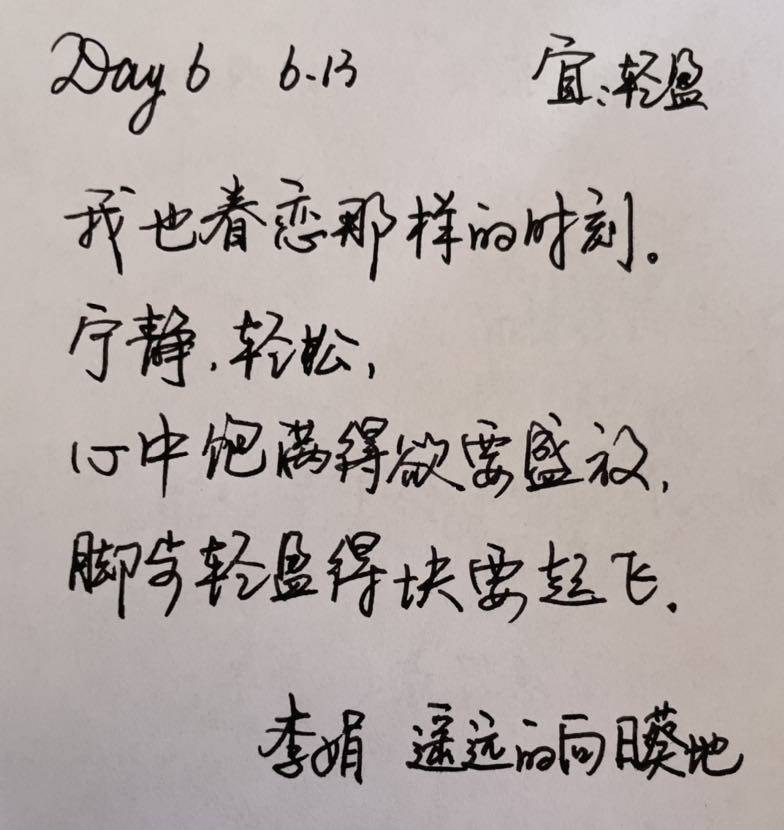 Day 6 6.13 宜:轻盈
我也眷恋那样的时刻。
宁静,轻松,
心中饱满得欲要盛放,
脚步轻盈得快要起飞.
李娟 遥远的向日葵地